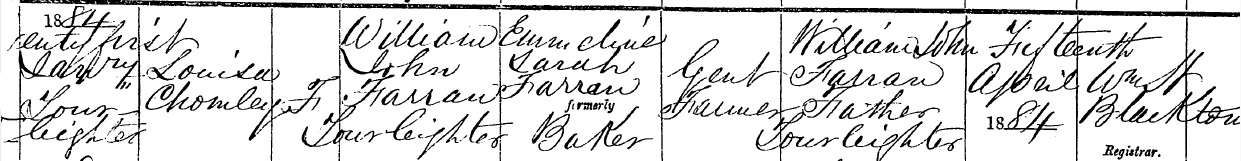 1884
Twenty first
Jan'ry
Tour
leighter
Louisa
Chomley
F
William
John
Farran
Tourleighter
Emmeline
Sarah
Farran
formerly
Baker
Gent
Farmer
William John
Farran
Father
Tourleighter
Fifteenth
April
1884
Wm H
Blackton
Registrar.